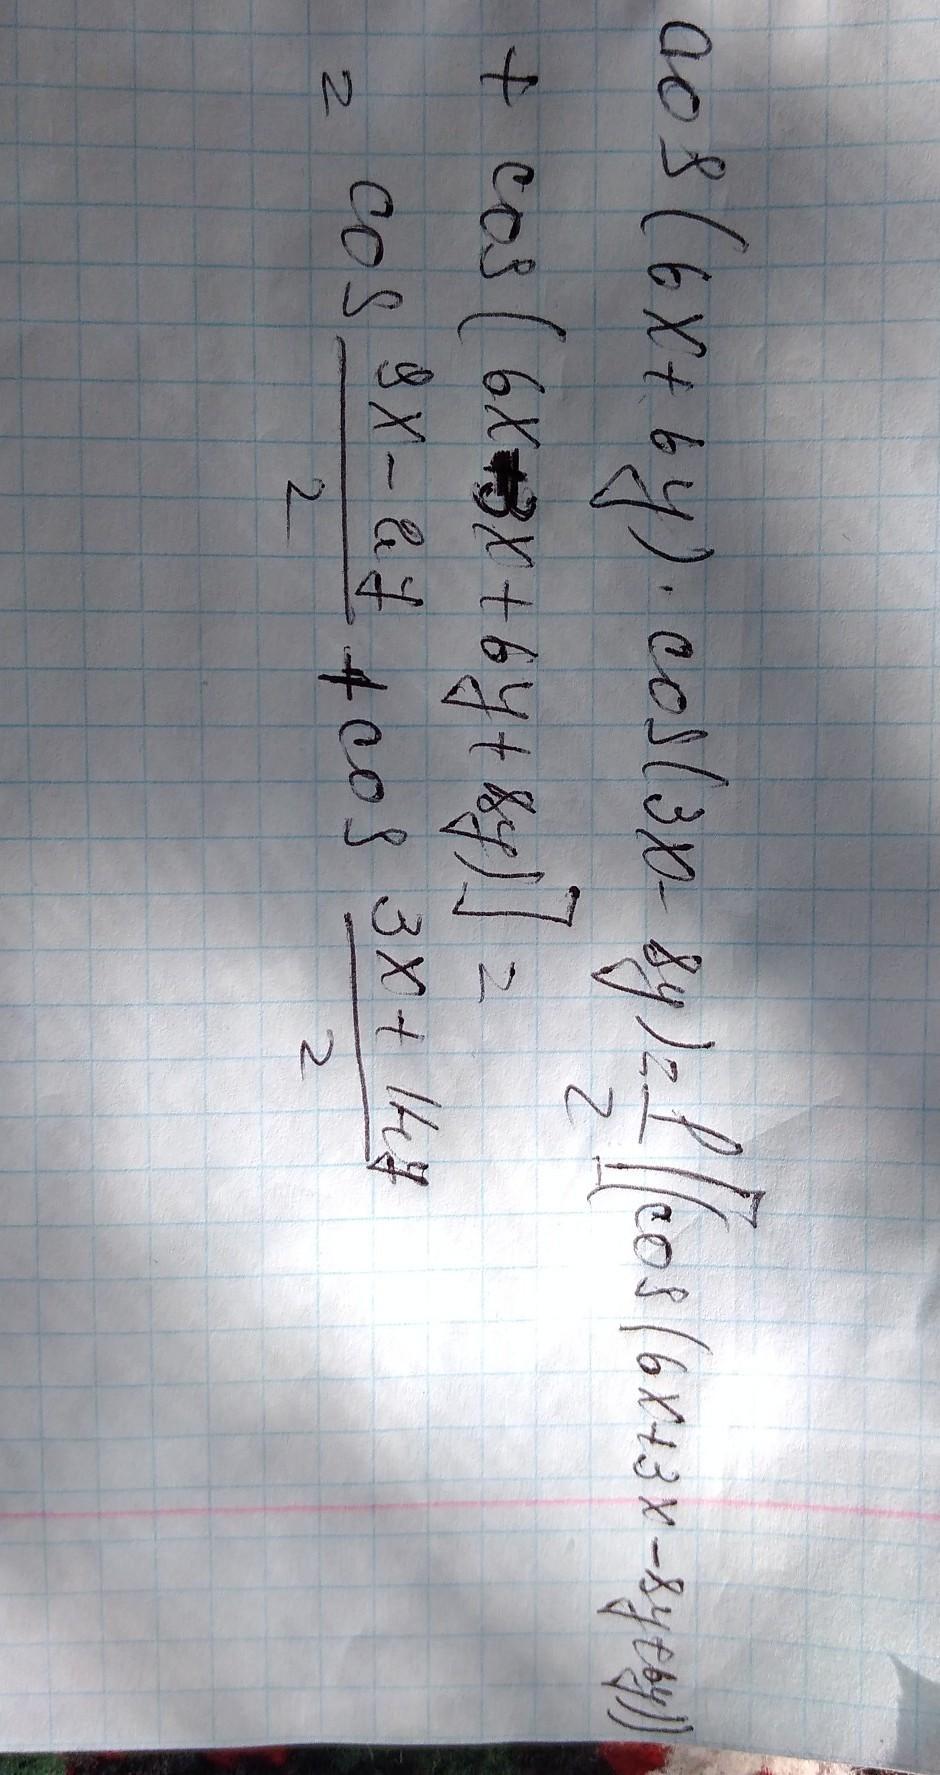 cos(6x+6y)·cos(3x-8y)=1/2[(cos(6x+3x-8y+6y))
+ cos(6x-3x+6y+8y)]=
= cos (9x-2y)/2 + cos (3x+14y)/2